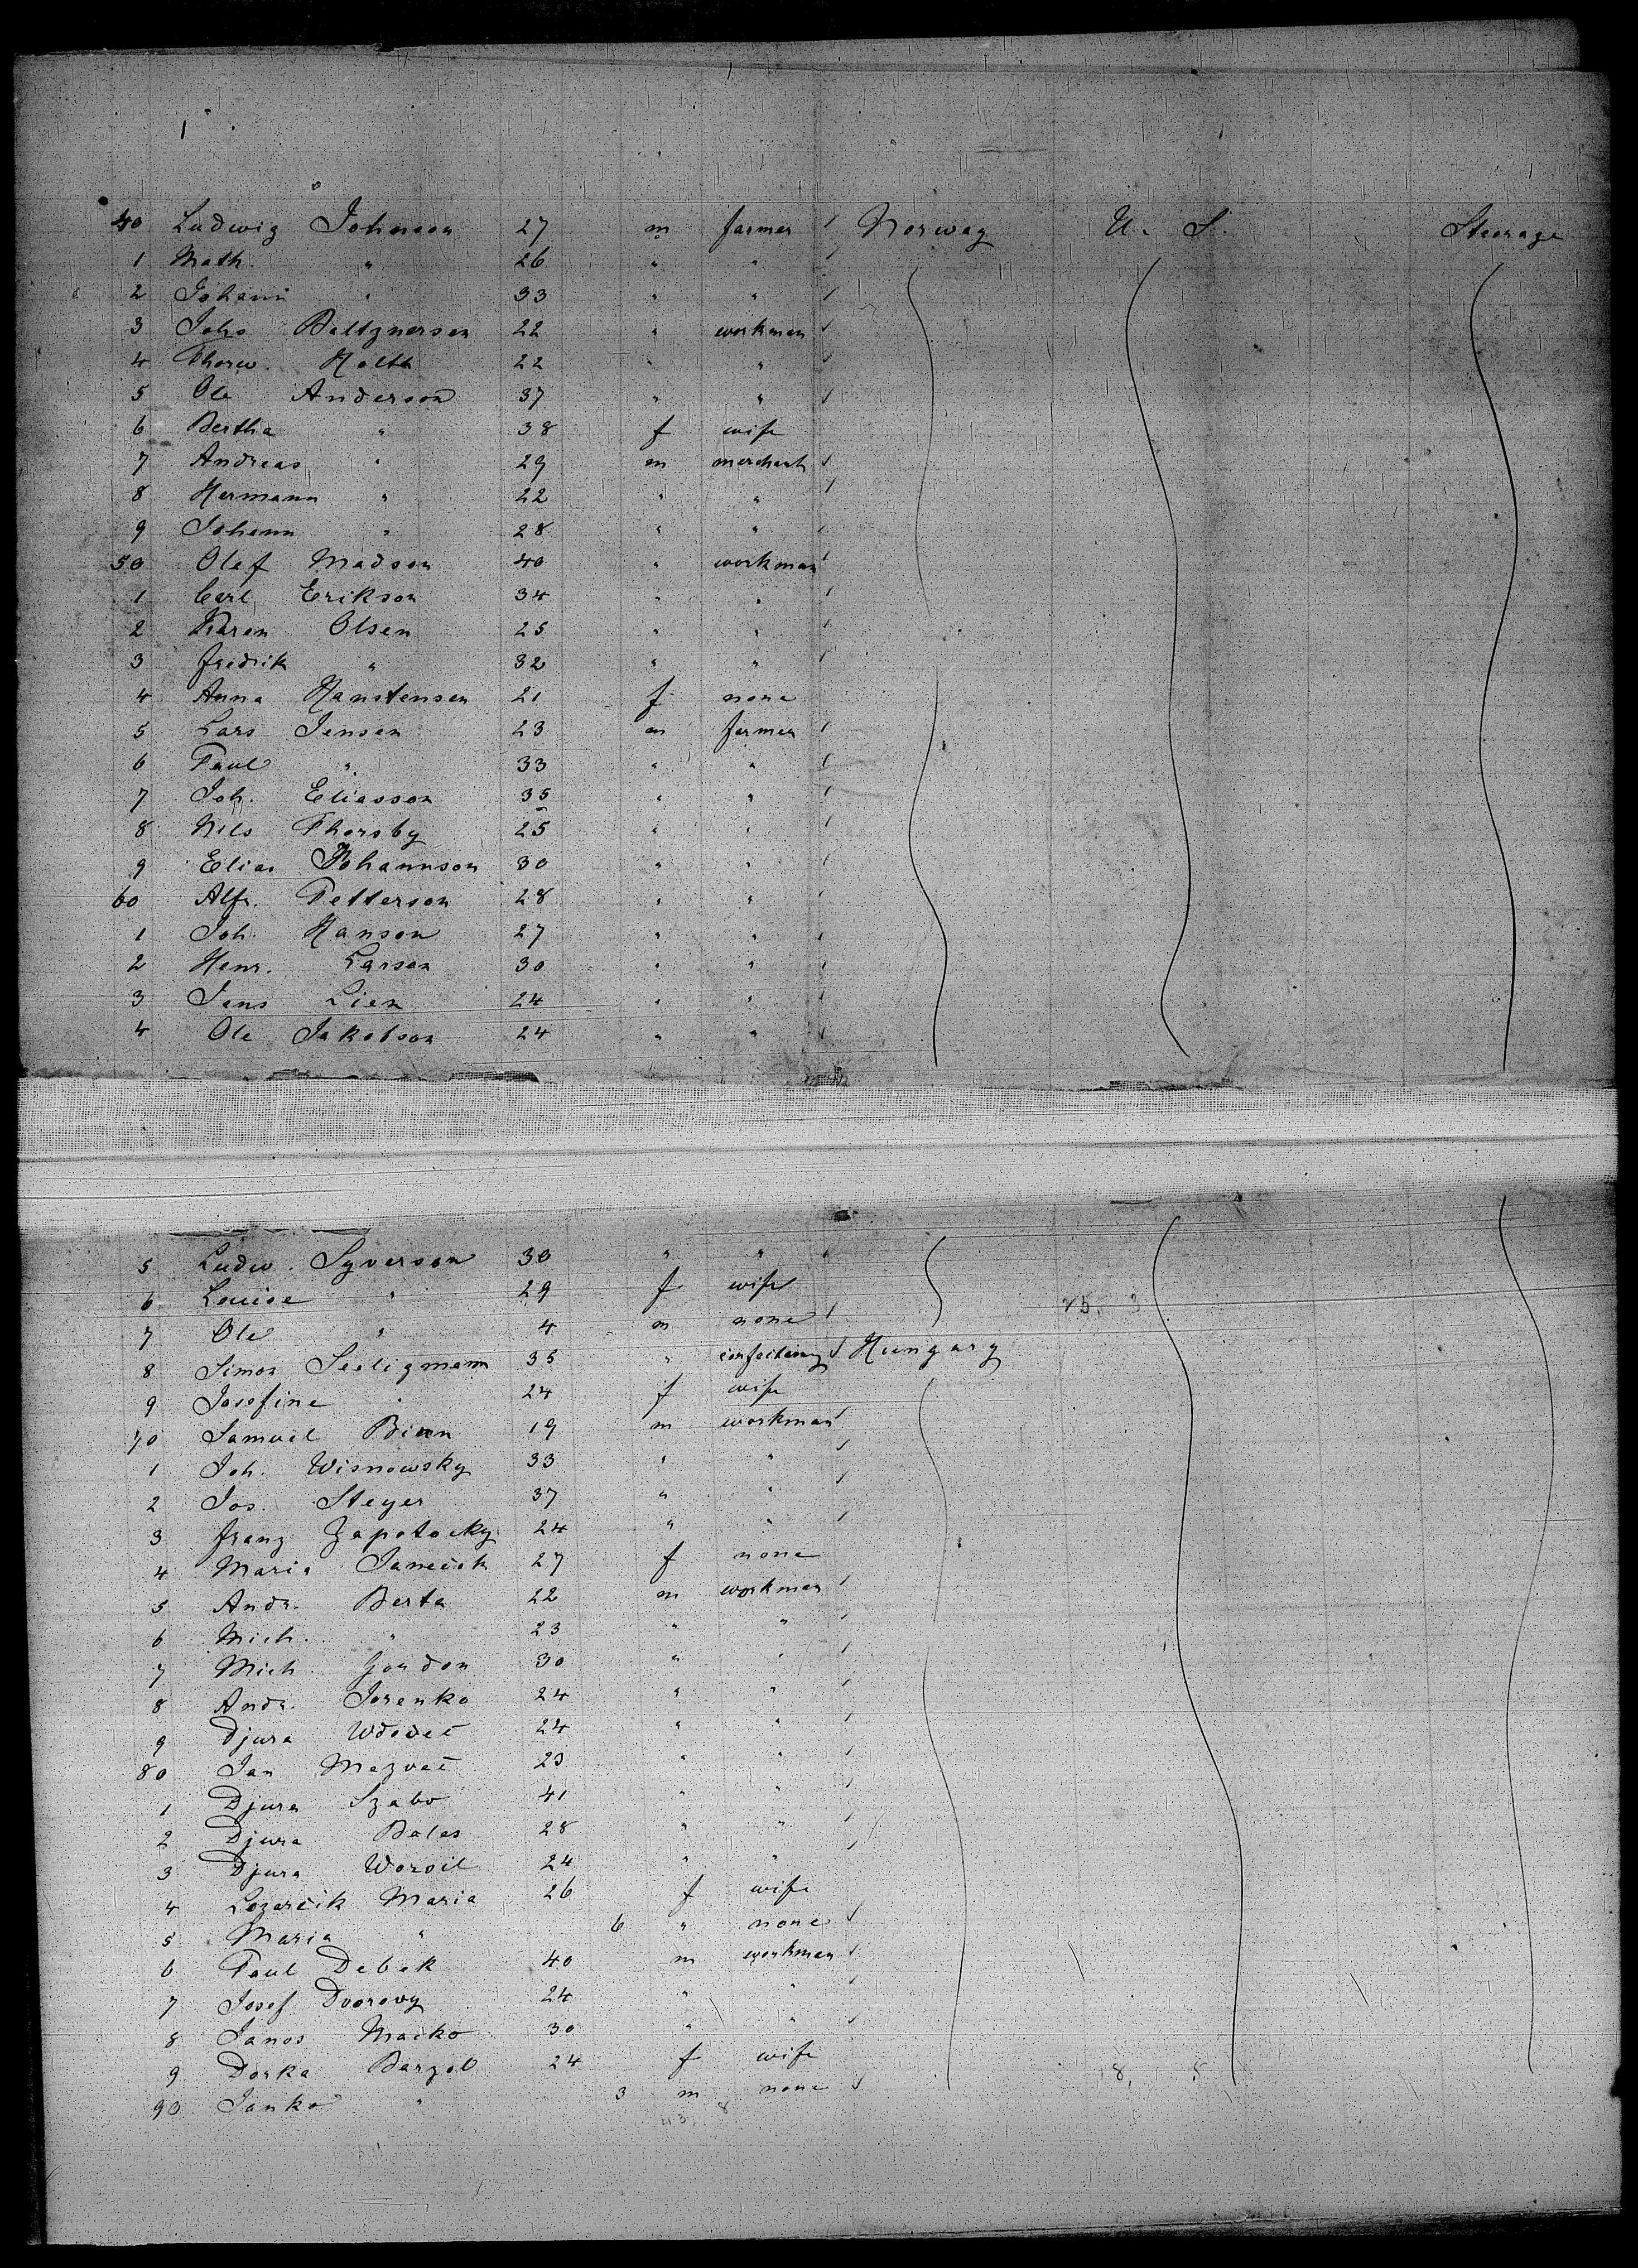 40 Ludwig Johnson 27 m farmer / Norway U. S. Steerage
1 Math. " 26 " " /
2 Johann " 33 " " /
3 Johs Baltznersen 22 " workman /
4 Thorw. Holth 22 " " /
5 Ole Anderson 37 " " /
6 Bertha " 38 f wife
7 Andreas " 29 m merchant /
8 Hermann " 22 " " /
9 Johann " 28 " " /
50 Olaf Madson 40 " workman /
1 Carl Erikson 34 " " /
2 Karen Olsen 25 " " /
3 Fredrik " 32 " " /
4 Anna Hanstensen 21 f none
5 Lars Jensen 23 m farmer /
6 Paul " 33 " " /
7 Joh. Eliasson 35 " " /
8 Nils Thorsby 25 " " /
9 Elias Johannson 30 " " /
60 Alfr. Petterson 28 " " /
1 Joh. Hanson 27 " " /
2 Henr. Larsen 30 " " /
3 Jens Lien 24 " " /
4 Ole Jakobson 24 " " /
5 Ludw. Syverson 30 " " /
6 Louise " 29 f wife
7 Ole " 4 m none /
8 Simon Seeligmann 35 " / Hungary
9 Josefine " 24 f wife
70 Samuel 19 m workman /
1 Joh. Wisnowsky 33 " " /
2 Jos. Steyer 37 " " /
3 Franz Zapotocky 24 " " /
4 Maria Janeček 27 f none
5 Andr. Berta 22 m workman /
6 Mich. " 23 " " /
7 Mich. Gordon 30 " " /
8 Andr. Jorenko 24 " " /
9 Djura 24 " " /
80 Jan 23 " " /
1 Djura Szabo 41 " " /
2 Djura Balas 28 " " /
3 Djura Woroil 24 " " /
4 Lozarčik Maria 26 f wife
5 Maria " 6 " none /
6 Paul Debek 40 m workman /
7 Josef Dvorovy 24 " " /
8 Janos Macko 30 " " /
9 Dorka 24 f wife
90 Janko " 3 m none /